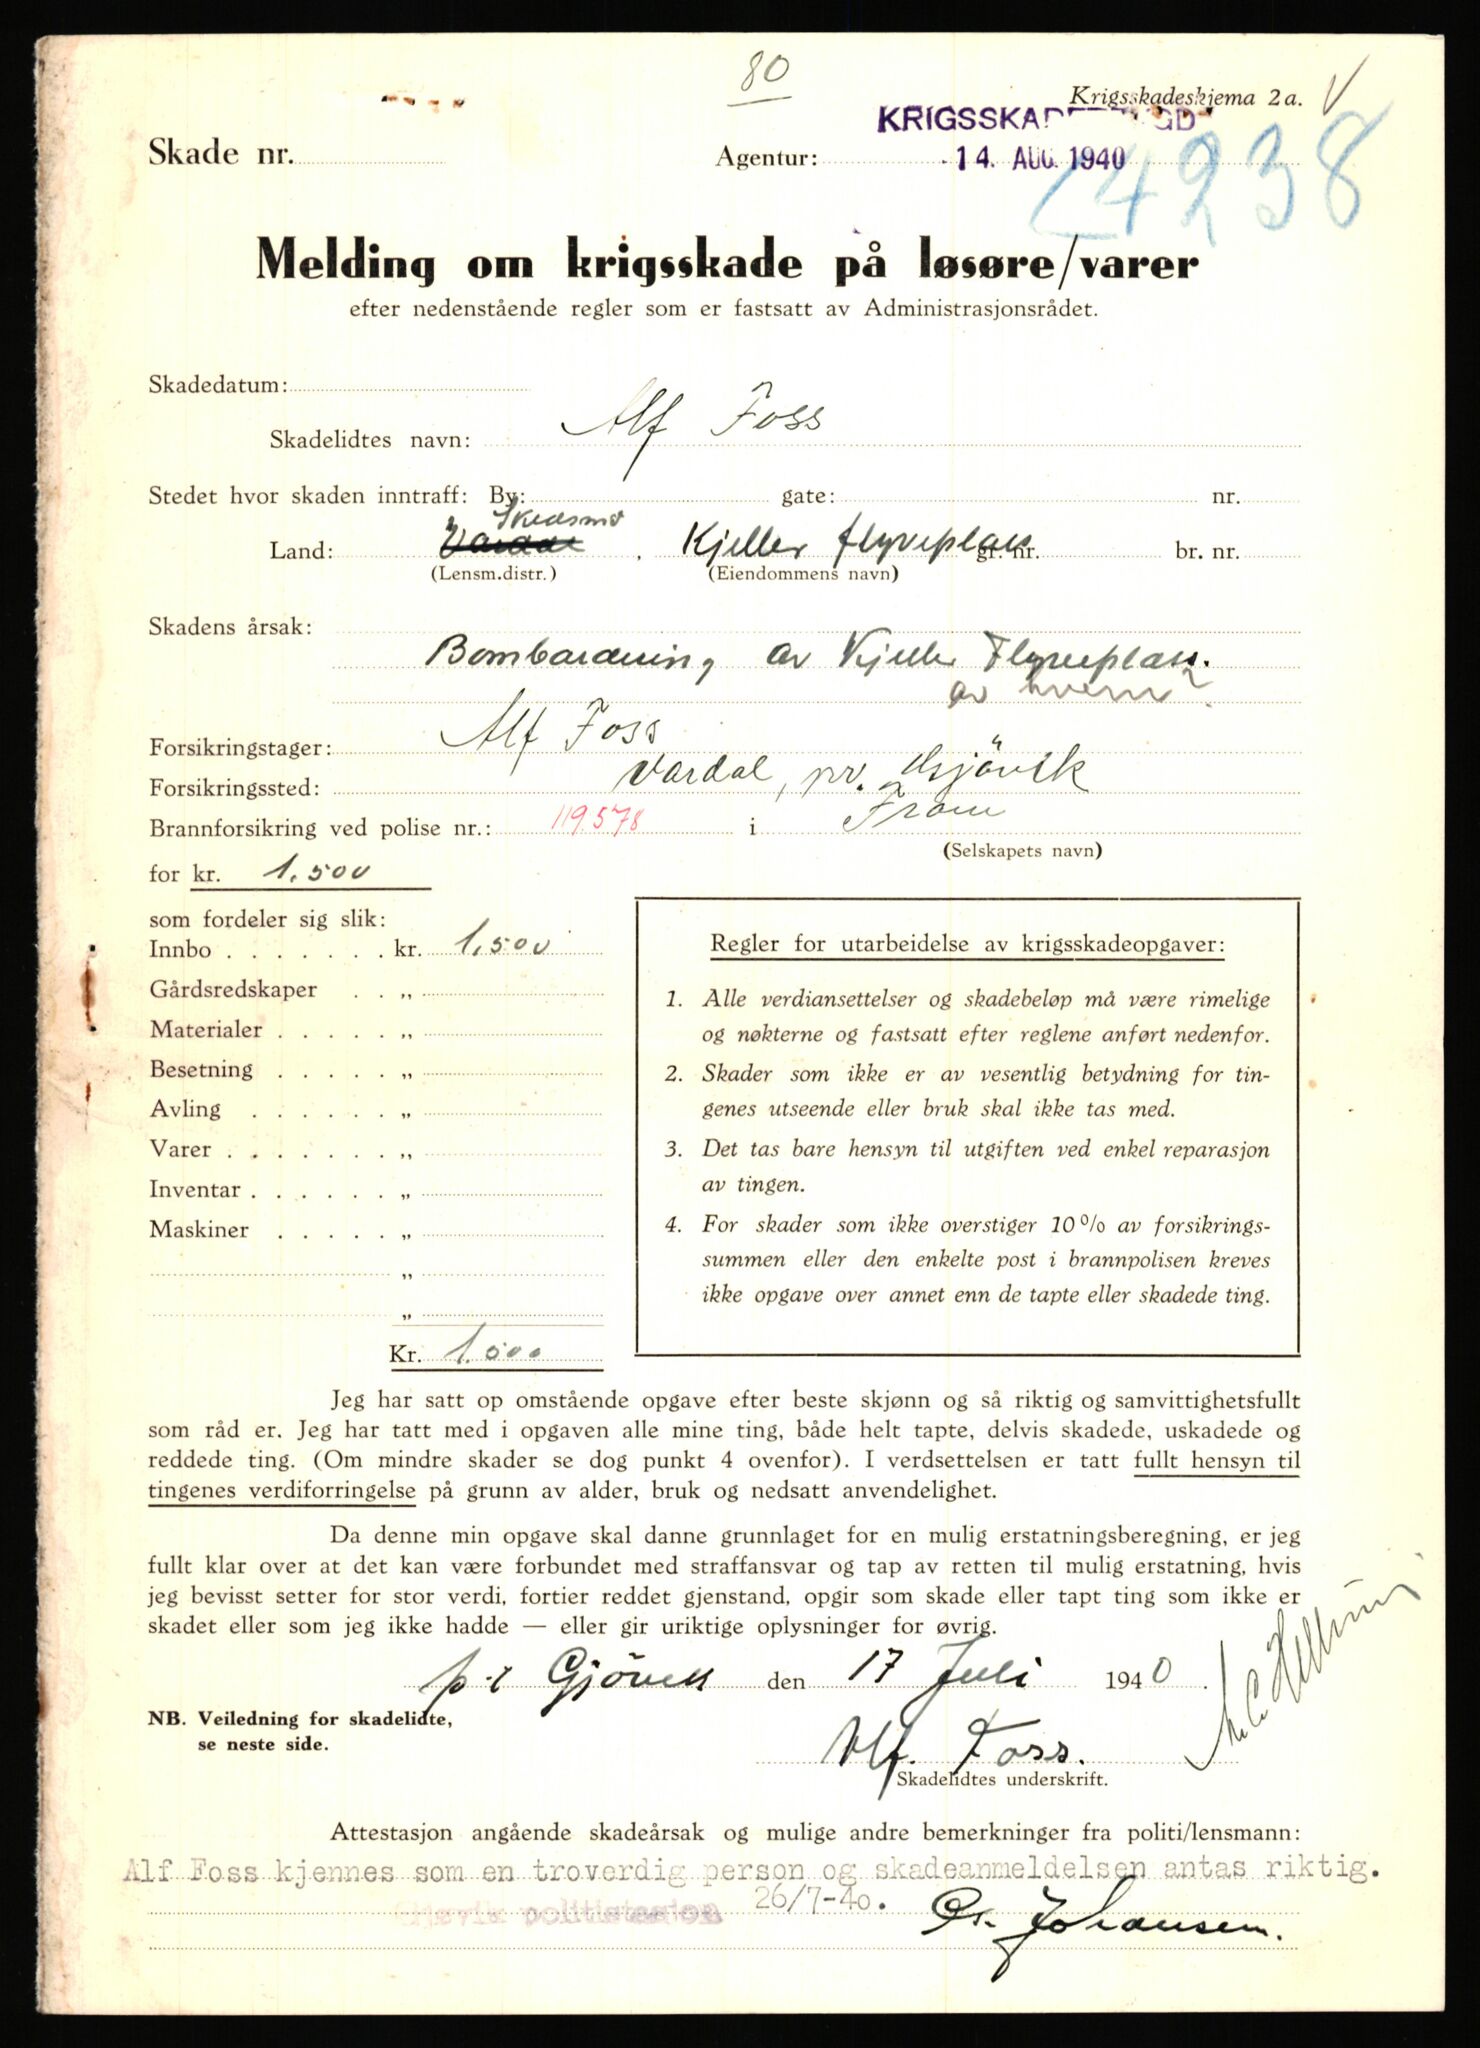 80
Krigsskadeskjema 2 a. V
KRIGSSKADETRYGD
Skade nr. Agentur: 14. AUG. 1940
4238
Melding om krigsskade på løsøre/varer
efter nedenstående regler som er fastsatt av Administrasjonsrådet.
Skadedatum:
Skadelidtes navn: Alf Foss
Stedet hvor skaden inntraff: By: gate: nr.
Skedsmo
Land: Vardal, Kjeller flyveplass gr. nr. br. nr.
(Lensm.distr.) (Eiendommens navn)
Skadens årsak:
Bombardering av Kjeller Flyveplass.
av hvem?
Forsikringstager: Alf Foss
Forsikringssted: Vardal, pr. Gjövik
Brannforsikring ved polise nr.: 119.578 i Fram
(Selskapets navn)
for kr. 1.500
som fordeler sig slik:
Innbo . . . . . . . kr. 1.500
Gårdsredskaper . . „
Materialer . . . . . „
Besetning . . . . . „
Avling . . . . . . „
Varer . . . . . . . „
Inventar . . . . . . „
Maskiner . . . . . „
„
„
Kr. 1.500
Regler for utarbeidelse av krigsskadeopgaver:
1. Alle verdiansettelser og skadebeløp må være rimelige
og nøkterne og fastsatt efter reglene anført nedenfor.
2. Skader som ikke er av vesentlig betydning for tin-
genes utseende eller bruk skal ikke tas med.
3. Det tas bare hensyn til utgiften ved enkel reparasjon
av tingen.
4. For skader som ikke overstiger 10% av forsikrings-
summen eller den enkelte post i brannpolisen kreves
ikke opgave over annet enn de tapte eller skadede ting.
Jeg har satt op omstående opgave efter beste skjønn og så riktig og samvittighetsfullt
som råd er. Jeg har tatt med i opgaven alle mine ting, både helt tapte, delvis skadede, uskadede og
reddede ting. (Om mindre skader se dog punkt 4 ovenfor). I verdsettelsen er tatt fullt hensyn til
tingenes verdiforringelse på grunn av alder, bruk og nedsatt anvendelighet.
Da denne min opgave skal danne grunnlaget for en mulig erstatningsberegning, er jeg
fullt klar over at det kan være forbundet med straffansvar og tap av retten til mulig erstatning, hvis
jeg bevisst setter for stor verdi, fortier reddet gjenstand, opgir som skade eller tapt ting som ikke er
skadet eller som jeg ikke hadde — eller gir uriktige oplysninger for øvrig.
p.t Gjövik den 17 Juli 1940.
NB. Veiledning for skadelidte,
se neste side.
Alf. Foss.
Skadelidtes underskrift.
Attestasjon angående skadeårsak og mulige andre bemerkninger fra politi/lensmann:
Alf Foss kjennes som en troverdig person og skadeanmeldelsen antas riktig.
Gjøvik politistasjon 26/7-40. Johansen.